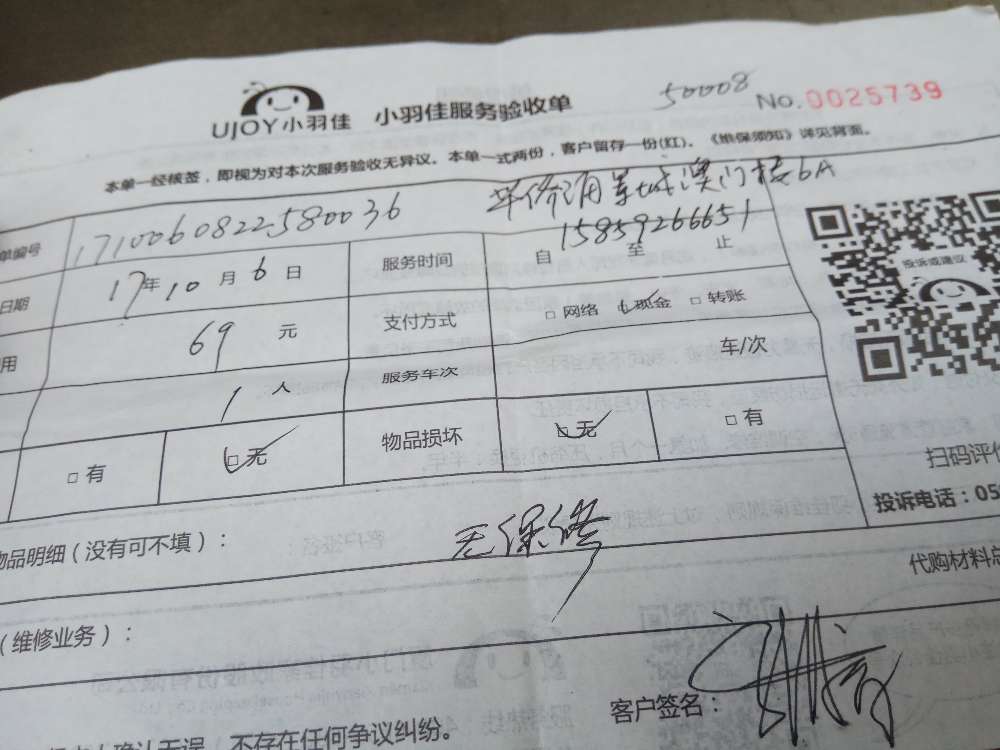 UJOY小羽佳 小羽佳服务验收单 50008 No.0025739
本单一经核签，即视为对本次服务验收无异议。本单一式两份，客户留存一份(红)。《维保须知》详见背面。
单编号 171006082258003 6 澳门楼6A
15859266651
日期 17年10月6日 服务时间 自 至 止
用 69 元 支付方式 □ 网络 □ 现金 □ 转账
1 人 服务车次 车/次
□ 有 □ 无 物品损坏 □ 无 □ 有
投诉或建议
扫码评价
投诉电话：05
物品明细（没有可不填）： 无保修
代购材料总
（维修业务）：
客户签名：
确认无误，不存在任何争议纠纷。